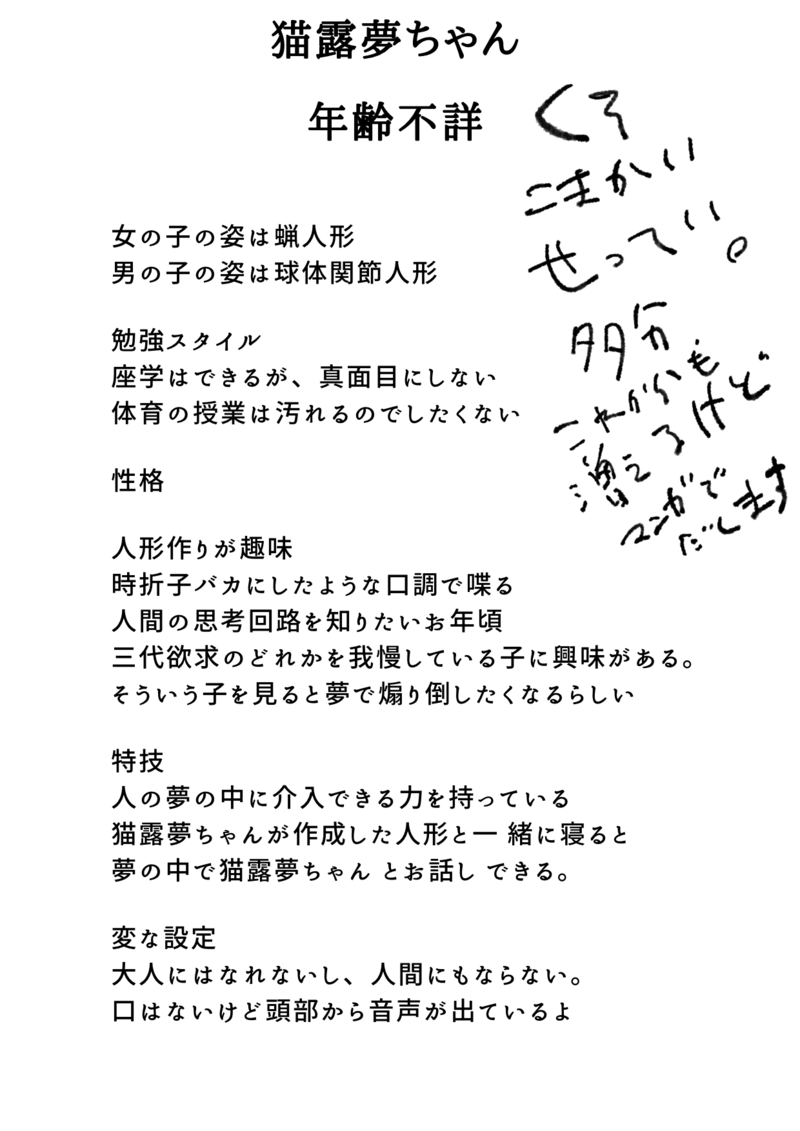 猫露夢ちゃん
年齢不詳
くそ
こまかい
せってい。
多分
これからも
増えるけど
マンガで
だします
女の子の姿は蝋人形
男の子の姿は球体関節人形
勉強スタイル
座学はできるが、真面目にしない
体育の授業は汚れるのでしたくない
性格
人形作りが趣味
時折子バカにしたような口調で喋る
人間の思考回路を知りたいお年頃
三代欲求のどれかを我慢している子に興味がある。
そういう子を見ると夢で煽り倒したくなるらしい
特技
人の夢の中に介入できる力を持っている
猫露夢ちゃんが作成した人形と一 緒に寝ると
夢の中で猫露夢ちゃん とお話し できる。
変な設定
大人にはなれないし、人間にもならない。
口はないけど頭部から音声が出ているよ